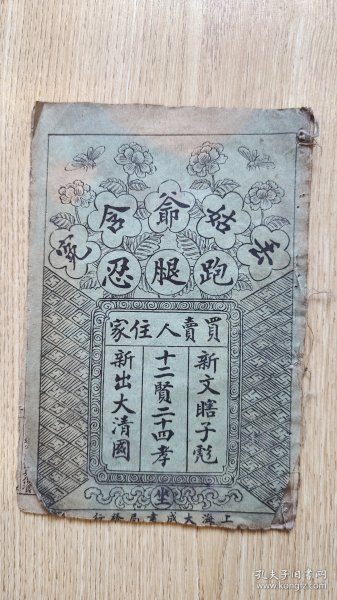 姑爺含冤
跑腿忍
買賣人住家
新文瞎子彪
十二賢二十四孝
新出大清國
上海大成書局發行
孔夫子旧书网
www.kongfz.com